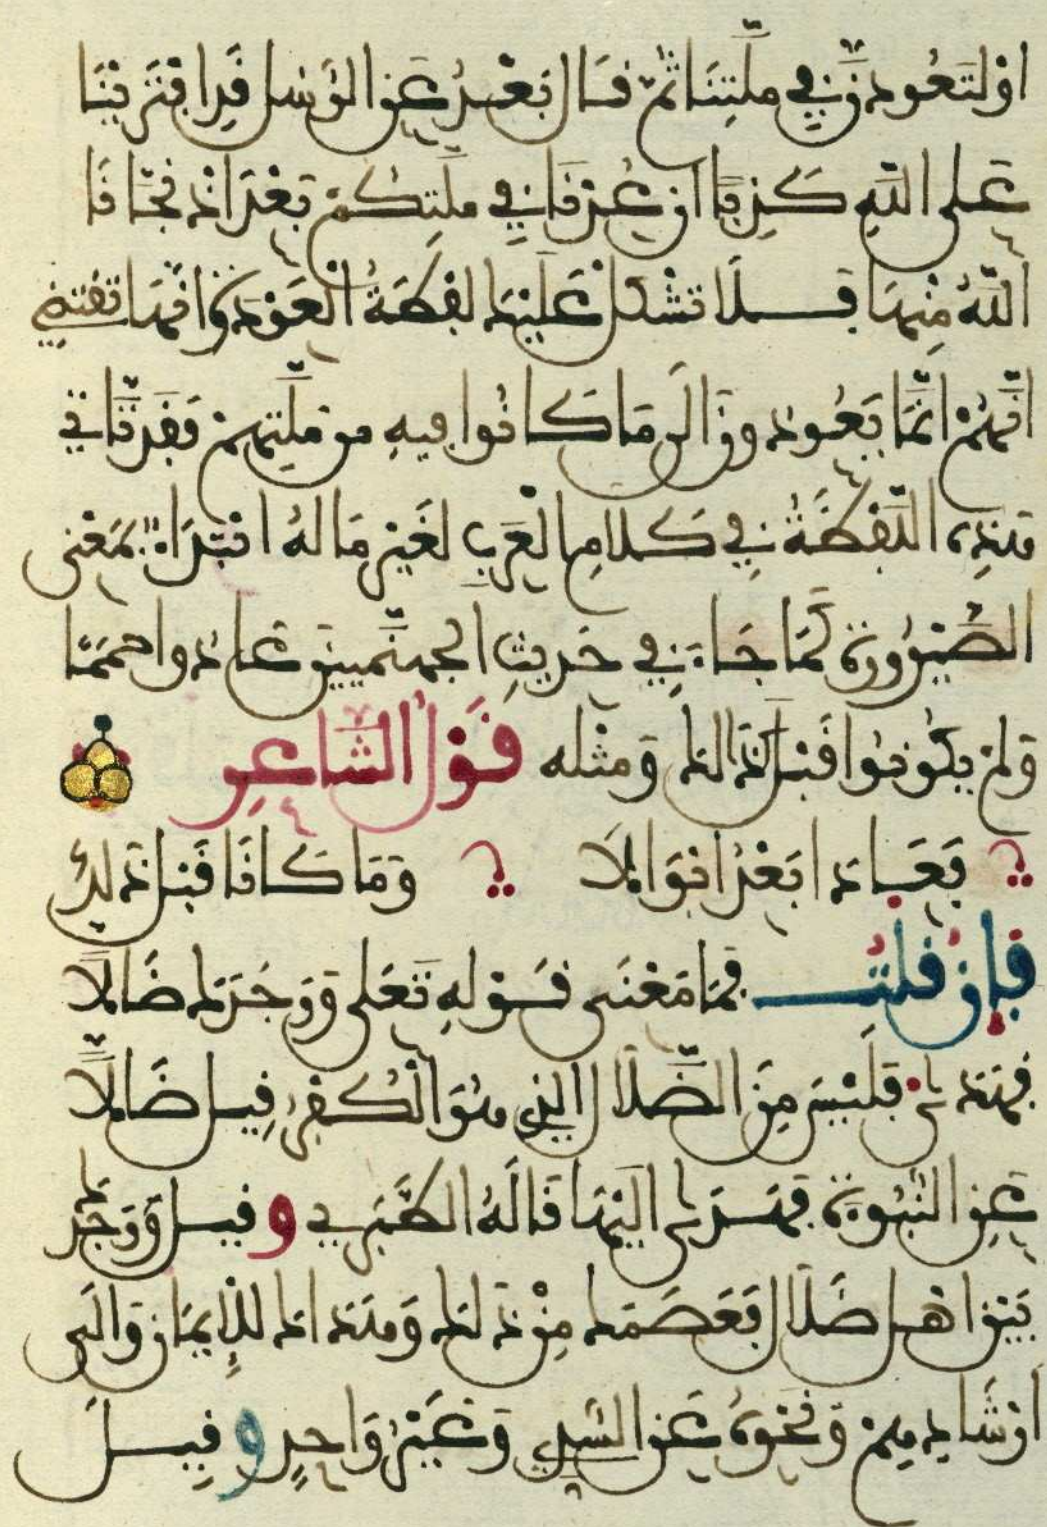 اوْ لتَعُودُنَّ فِي ملّتِنَا ثمّ قال بَعْدُ عَنِ الرُّسُل قَدِ افْتَرَيْنَا
عَلى اللّهِ كَذِبًا انْ عُدْنَا فِي ملّتِكُمْ بَعْدَ اذْ نَجّانَا
اللّهُ مِنْهَا فلا تشْكلْ عَلَيْكَ لفْظَةُ الْعَوْدَةِ وَانّهَا تقتضي
انّهُمْ انّمَا يَعُودُونَ الَى مَا كَانُوا فيهِ من ملّتِهِمْ فقدْ تاتي
هَذِهِ اللّفْظَةُ فِي كلامِ الْعَرَبِ لغَيْرِ مَا لهُ ابْتِدَاءٌ بمَعْنى
الصّيْرُورَةِ كَمَا جَاءَ فِي حَدِيثِ الجهنّميينَ عَادُوا حممًا
وَلمْ يكُونُوا قَبْلُ كَذَالكَ وَمثْله قَوْلُ الشاعِرِ
فَعَادَا بَعْدُ ابْوَالا وَمَا كَانَا قَبْلَ ذَلِكَ
فإنْ قلْتَ فمَا مَعْنَى قَوْلهِ تَعَلى وَوَجَدَكَ ضَالّا
فهَدَى فَلَيْسَ مِنَ الضّلالِ الذِي هُوَ الْكُفْرُ قِيلَ ضَالّا
عَنِ النّبُوءةِ فهَدَى الَيْهَا قَالَهُ الطّبَرِي وقيل وَوَجَدَكَ
بَيْنَ اهْلِ ضَلالٍ فعَصَمَكَ مِنْ ذَلكَ وَهَدَاكَ للْإِيمَانِ وَالَى
ارْشَادِهِمْ وَنَحْوهُ عَنِ السّدِي وَغَيْرِ وَاحِدٍ وقِيلَ